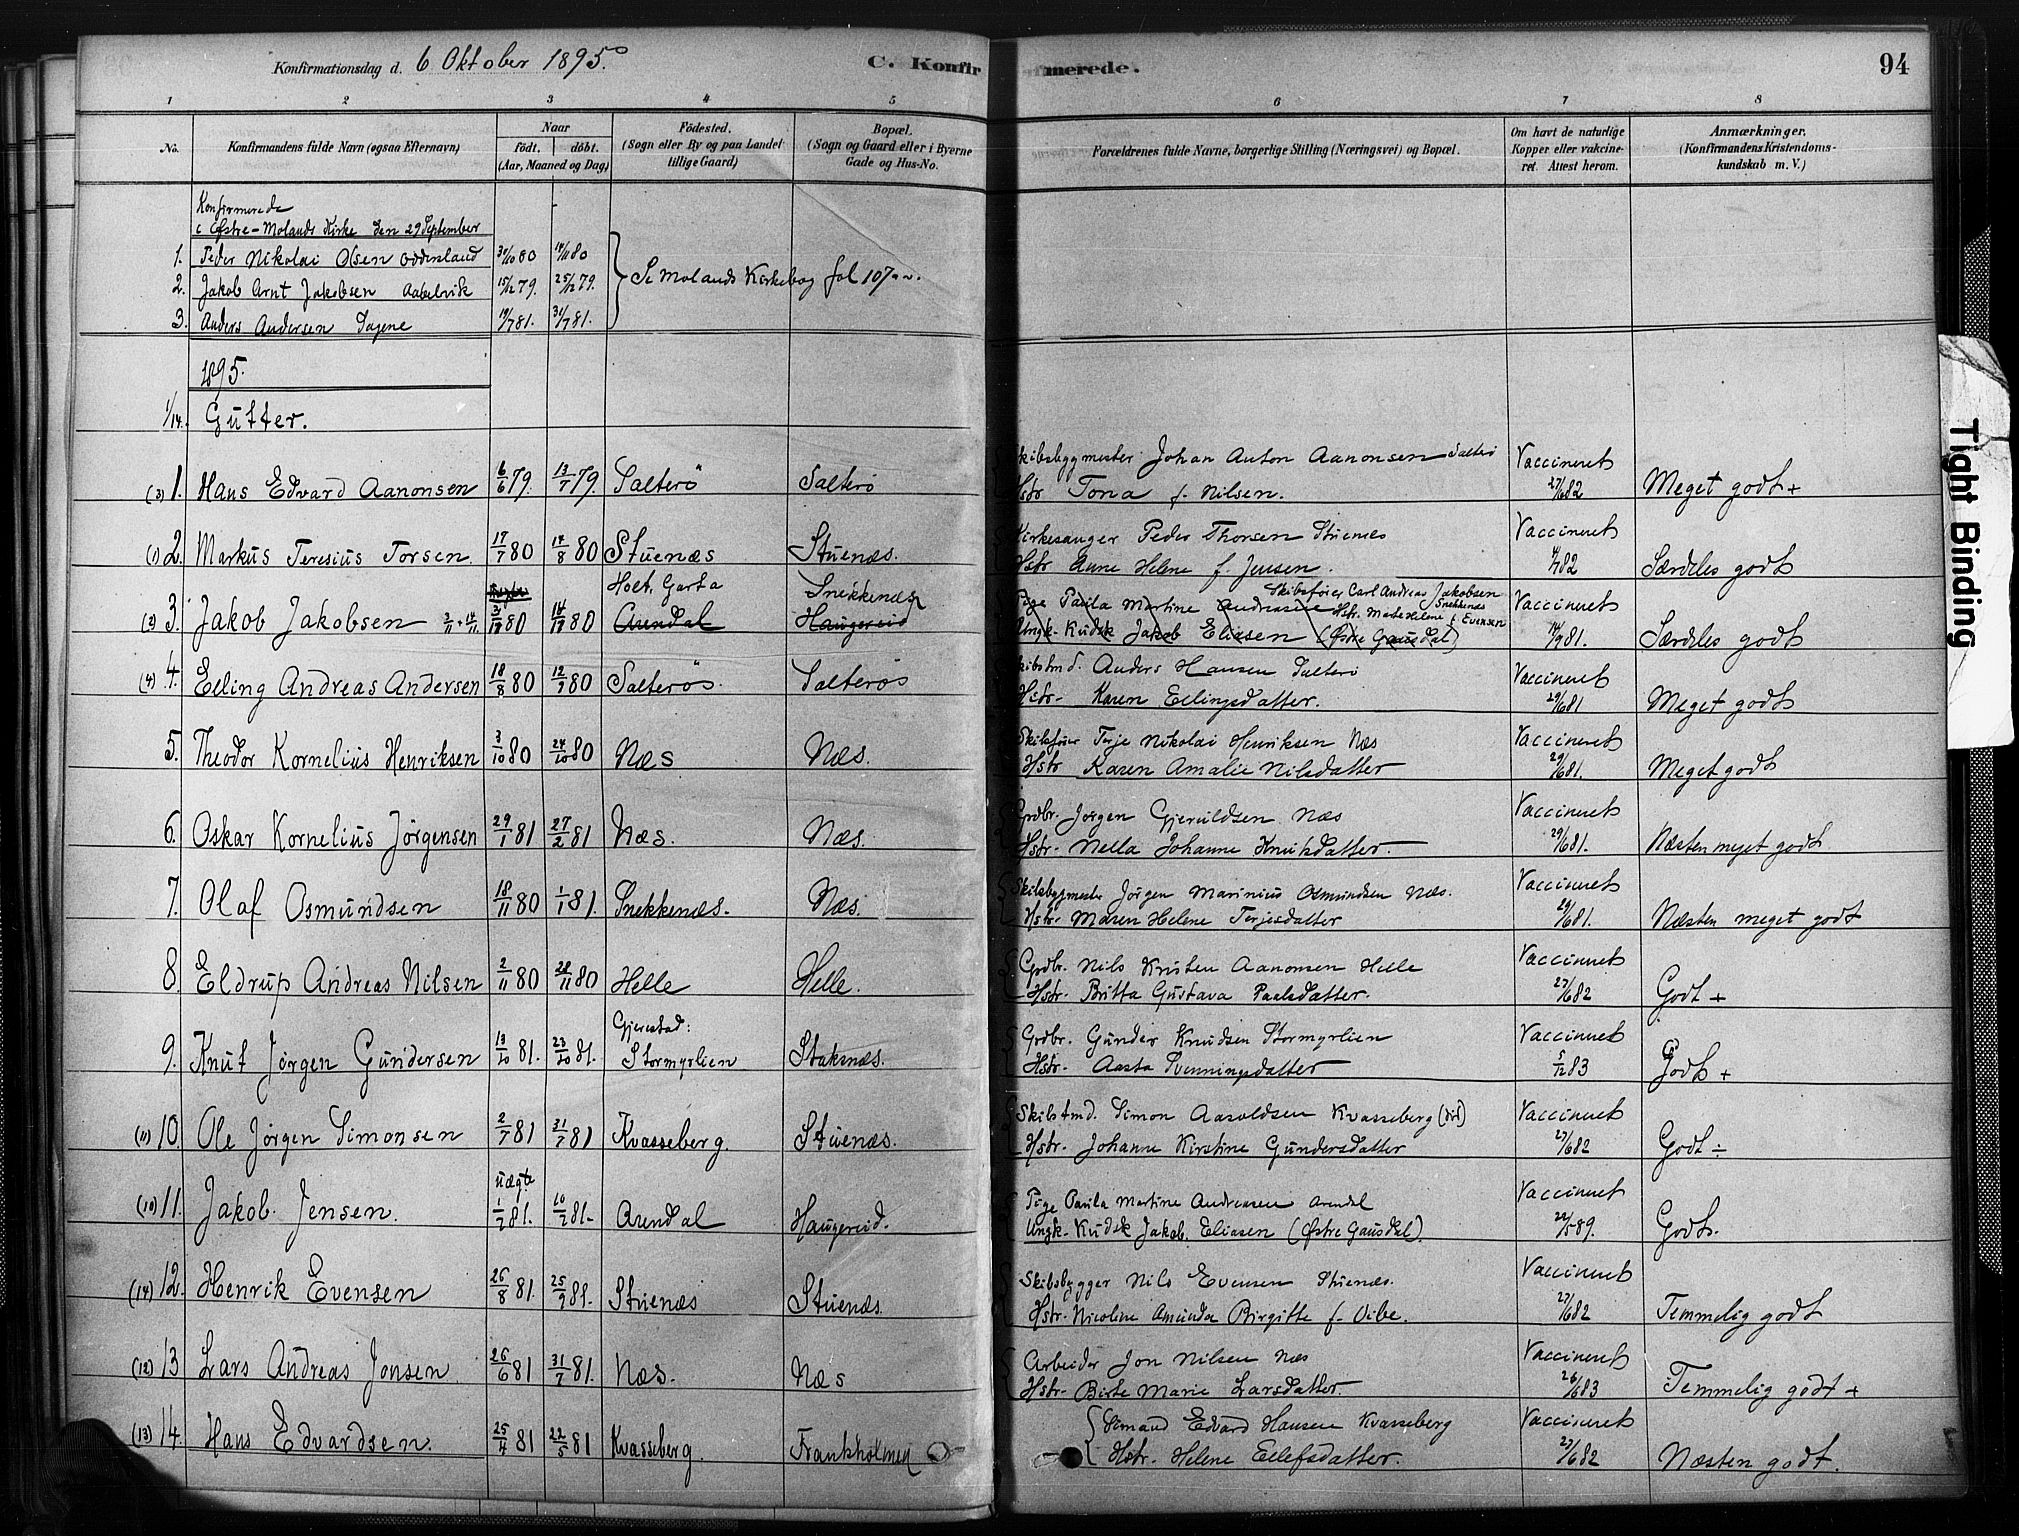 Konfirmationsdag d. 6 Oktober 1895.
C. Konfirmerede.
94
1 2 3 4 5 6 7 8
No.
Konfirmandens fulde Navn (ogsaa Efternavn)
Naar
født. døbt.
(Aar, Maaned og Dag)
Fødested.
(Sogn eller By og paa Landet
tillige Gaard)
Bopæl.
(Sogn og Gaard eller i Byerne
Gade og Hus-No.
Forældrenes fulde Navne, borgerlige Stilling (Næringsvei) og Bopæl.
Om havt de naturlige
Kopper eller vakcine-
ret. Attest herom.
Anmærkninger.
(Konfirmandens Kristendoms-
kundskab m. V.)
Konfirmerede
i Østre-Molands Kirke den 29 September
1. Peder Nikolai Olsen Oddersland 31/10 80 14/11 80
2. Jakob Arnt Jakobsen Aabelvik 15/12 79. 25/12 79. Se Molands Kirkebog fol 107
3. Anders Andersen Sagene 19/7 81. 31/7 81.
1895.
1/14. Gutter.
Skibsbygmester Johan Anton Aanonsen Salterö Vaccineret
(3) 1. Hans Edvard Aanonsen 6/6 79. 13/7 79. Salterö Salterö Hstr Tona f. Nilsen. 27/6 82 Meget godt +
Kirkesanger Peder Thorsen Stuenæs Vaccineret
(1) 2. Markus Teresius Torsen. 17/7 80 14/8 80 Stuenæs Stuenæs. Hstr Anne Helene f. Jensen. 82 Særdeles godt
Holt, Garta Snekkenæs Pige Paula Martine Andreasen Skibsfører Carl Andreas Jakobsen Snekkenæs Vaccineret
Hstr. Mette Helene f. Evensen
(2) 3. Jakob Jakobsen 2/11 + 14/11. 80 80 Arendal Haugereid Ungk. Kudsk Jakob Eliasen (Østre Gausdal) 14/9 81. Særdeles godt
Skibstmd. Anders Hansen Salterö Vaccineret
(4) 4. Elling Andreas Andersen 18/8 80 12/9 80 Salterös Salterös Hstr- Karen Ellingsdatter. 29/6 81 Meget godt
Skibsfører Terje Nikolai Henriksen Næs Vaccineret
5. Theodor Kornelius Henriksen 3/10 80 24/10 80 Næs Næs. Hstr Karen Amalie Nilsdatter 29/6 81. Meget godt
Grdbr. Jørgen Gjeruldsen Næs Vaccineret
6. Oskar Kornelius Jörgensen 29/1 81 27/2 81 Næs. Næs. Hstr- Nella Johanne Knutsdatter. 29/6 81. Næsten meget godt
Skibsbygmester Jörgen Marinius Osmundsen Næs. Vaccineret
7. Olaf Osmundsen 18/11 80 1/1 81. Snekkenæs. Næs. Hstr- Maren Helene Terjesdatter 29/6 81. Næsten meget godt
Grdbr. Nils Kristen Aanonsen Helle Vaccineret
8. Eldrup Andreas Nilsen 2/11 80 28/11 80 Helle Helle. Hstr- Britta Gustava Paalsdatter. 27/6 82 Godt +
Gjerestad: Grdbr. Gunder Knudsen Stormyrlien Vaccineret
9. Knut Jörgen Gundersen 13/10 81. 23/10 81. Stormyrlien Staksnæs. Hstr- Aasta Svenningsdatter 5/12 83 Godt +
Skibstmd. Simon Aasoldsen Kvasseberg (död) Vaccineret
(11) 10. Ole Jörgen Simonsen 2/7 81 31/7 81 Kvasseberg. Stuenæs. Hstr- Johanne Kirstine Gundersdatter 27/6 82 Godt ÷
uægte Pige Paula Martine Andreasen Arendal Vaccineret
(10) 11. Jakob Jensen. 1/2 81. 10/2 81- Arendal Haugereid. Ungk- Kudsk Jakob Eliasen (Østre Gausdal). 22/5 89. Godt.
Skibsbygger Nils Evensen Stuenæs. Vaccineret
(14) 12. Henrik Evensen 26/8 81. 25/9 81. Stuenæs Stuenæs. Hstr- Nicoline Amunda Birgitte f. Vibe. 27/6 82 Temmelig godt
Arbeider Jon Nilsen Næs Vaccineret
(12) 13 Lars Andreas Jonsen. 26/6 81 31/7 81. Næs. Næs Hstr- Birte Marie Larsdatter. 26/6 83 Temmelig godt +
Sömand Edvard Hansen Kvasseberg Vaccineret
(13) 14. Hans Edvardsen. 25/4 81 22/5 81 Kvasseberg. Frankholmen Hstr. Helene Ellefsdatter. 27/6 82 Næsten godt.
Tight Binding